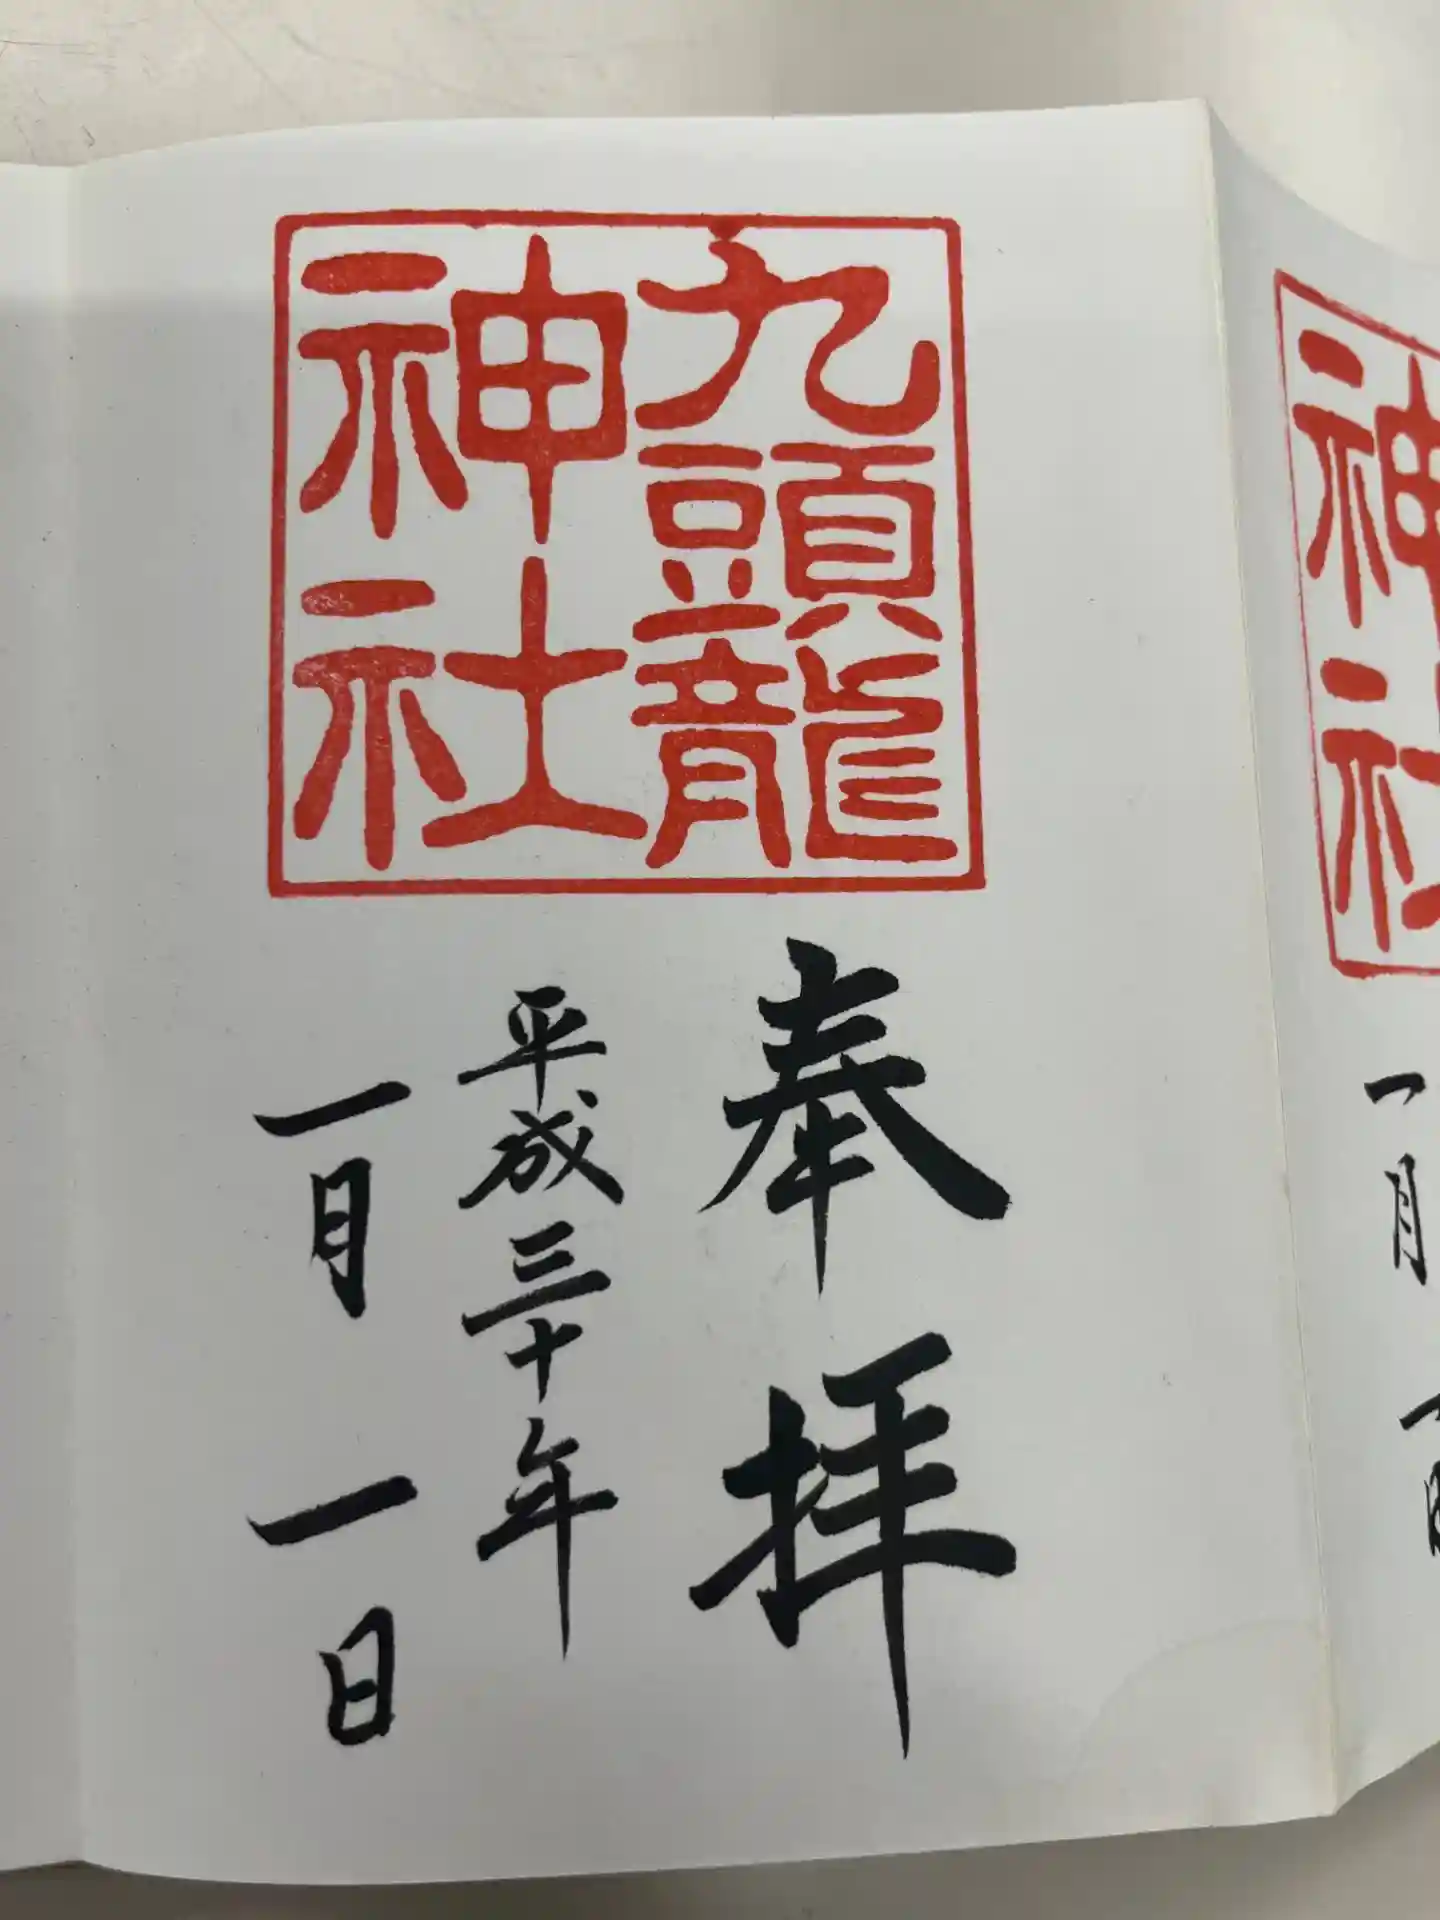 九頭龍
神社
奉拝
平成三十年
一月一日
神社
一月